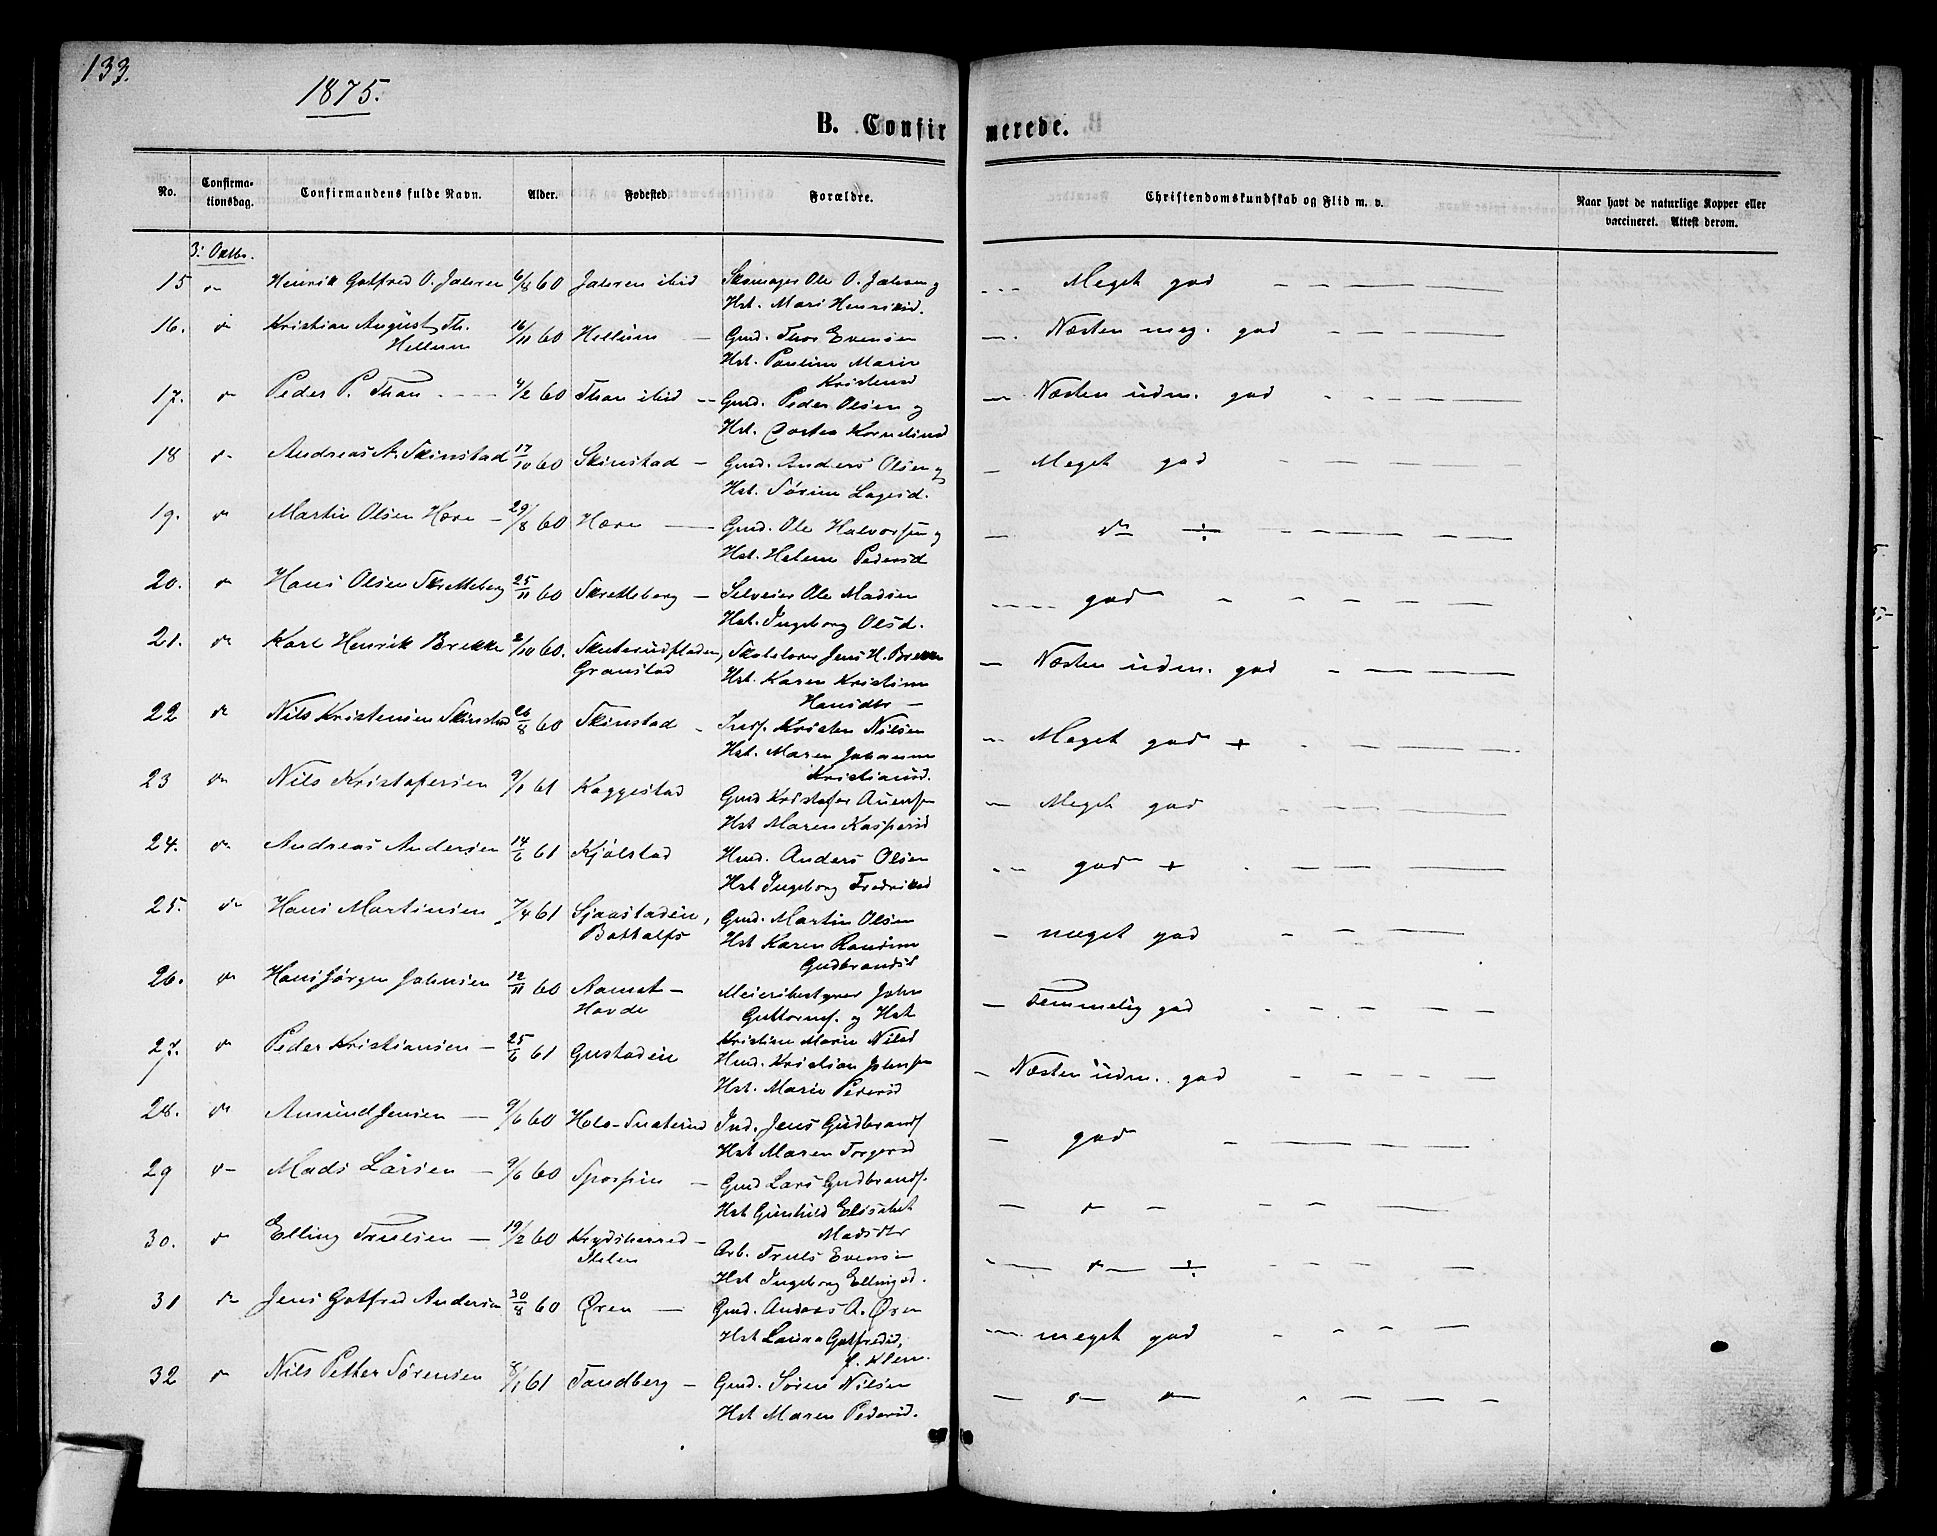 133.
1875.
B. Confirmerede.
No. Confirmationsdag. Confirmandens fulde Navn. Alder. Fødested. Forældre. Christendomskundskab og Flid m. v. Naar havt de naturlige Kopper eller vaccineret. Attest derom.
3: Octbr.
15 do Henrik Gotfred O. Jahren 6/8 60 Jahren ibid Skomager Ole O. Jahren og Meget god
Hst. Mari Henriksd.
16. do Kristian August Th. 16/11 60 Hellum Gmd. Thor Evensen Næsten meg. god
Hellum Hst. Pauline Marie
Kristensd
17. do Peder P. Thon 4/2 60 Thon ibid Gmd. Peder Olsen og Næsten üdm. god
Hst. Dortea Korneliusd
18 do Andreas A. Skinstad 17/10 60 Skinstad Gmd. Anders Olsen og Meget god
Hst. Sørine Lagesd.
19. do Martin Olsen Hære 29/8 60 Hære Gmd. Ole Halvorsen og do ÷
Hst. Helene Pedersd
20. do Hans Olsen Skretteberg 25/11 60 Skretteberg Selveier Ole Madsen god
Hst. Ingeborg Olsd.
21. do Karl Henrik Brekke 2/10 60. Skuterudfladen, Skolelærer Jens H. Brekke Næsten üdm. god
Granstad Hst. Karen Kristine
Hansdtr
22 do Nils Kristensen Skinstad 26/8 60 Skinstad Indf. Kristen Nilsen Meget god +
Hst. Maren Johanne
Kristiansd.
23 do Nils Kristofersen 9/1 61 Kaggestad Gmd Kristofer Auensen Meget god
Hst Maren Kaspersd
24. do Andreas Andersen 14/6 61 Kjølstad Hmd. Anders Olsen god +
Hst Ingeborg Fredriksd
25. do Hans Martinsen 7/4 61 Sjaastadeie, Gmd. Martin Olsen meget god
Bottolfs Hst Karen Randine
Gudbrandsd
26. do Hans Jørgen Johnsen 12/11 60 Aamot- Meieribestyrer John Temmelig god
Hovde Guttormf. og Hst
Kristine Marie Nilsd
27. do Peder Kristiansen 25/6 61 Gustadeie Hmd. Kristian Johnsen Næsten üdm. god
Hst. Marie Pedersd
28. do Amund Jensen 9/6 60 Hole-Snaterud Ind. Jens Gudbrandf god
Hst Maren Torgersd
29 do Mads Larsen 9/6 60 Spærpen Gmd Lars Gudbrandf. do
Hst Gunhild Elisabet
Madsdtr
30. do Elling Trulsen 19/2 60 Krydsherred- Arb. Truls Evensen do ÷
Hst Ingeborg Ellingsd.
31 do Jens Gotfred Andersen 30/8 60 Øren Gmd. Anders A. Øren meget god
Hst Laura Gotfredsd,
f. Klem.
32 do Nils Petter Sørensen 8/1 61 Tandberg Gmd. Søren Nilsen do do
Hst Maren Pedersd.